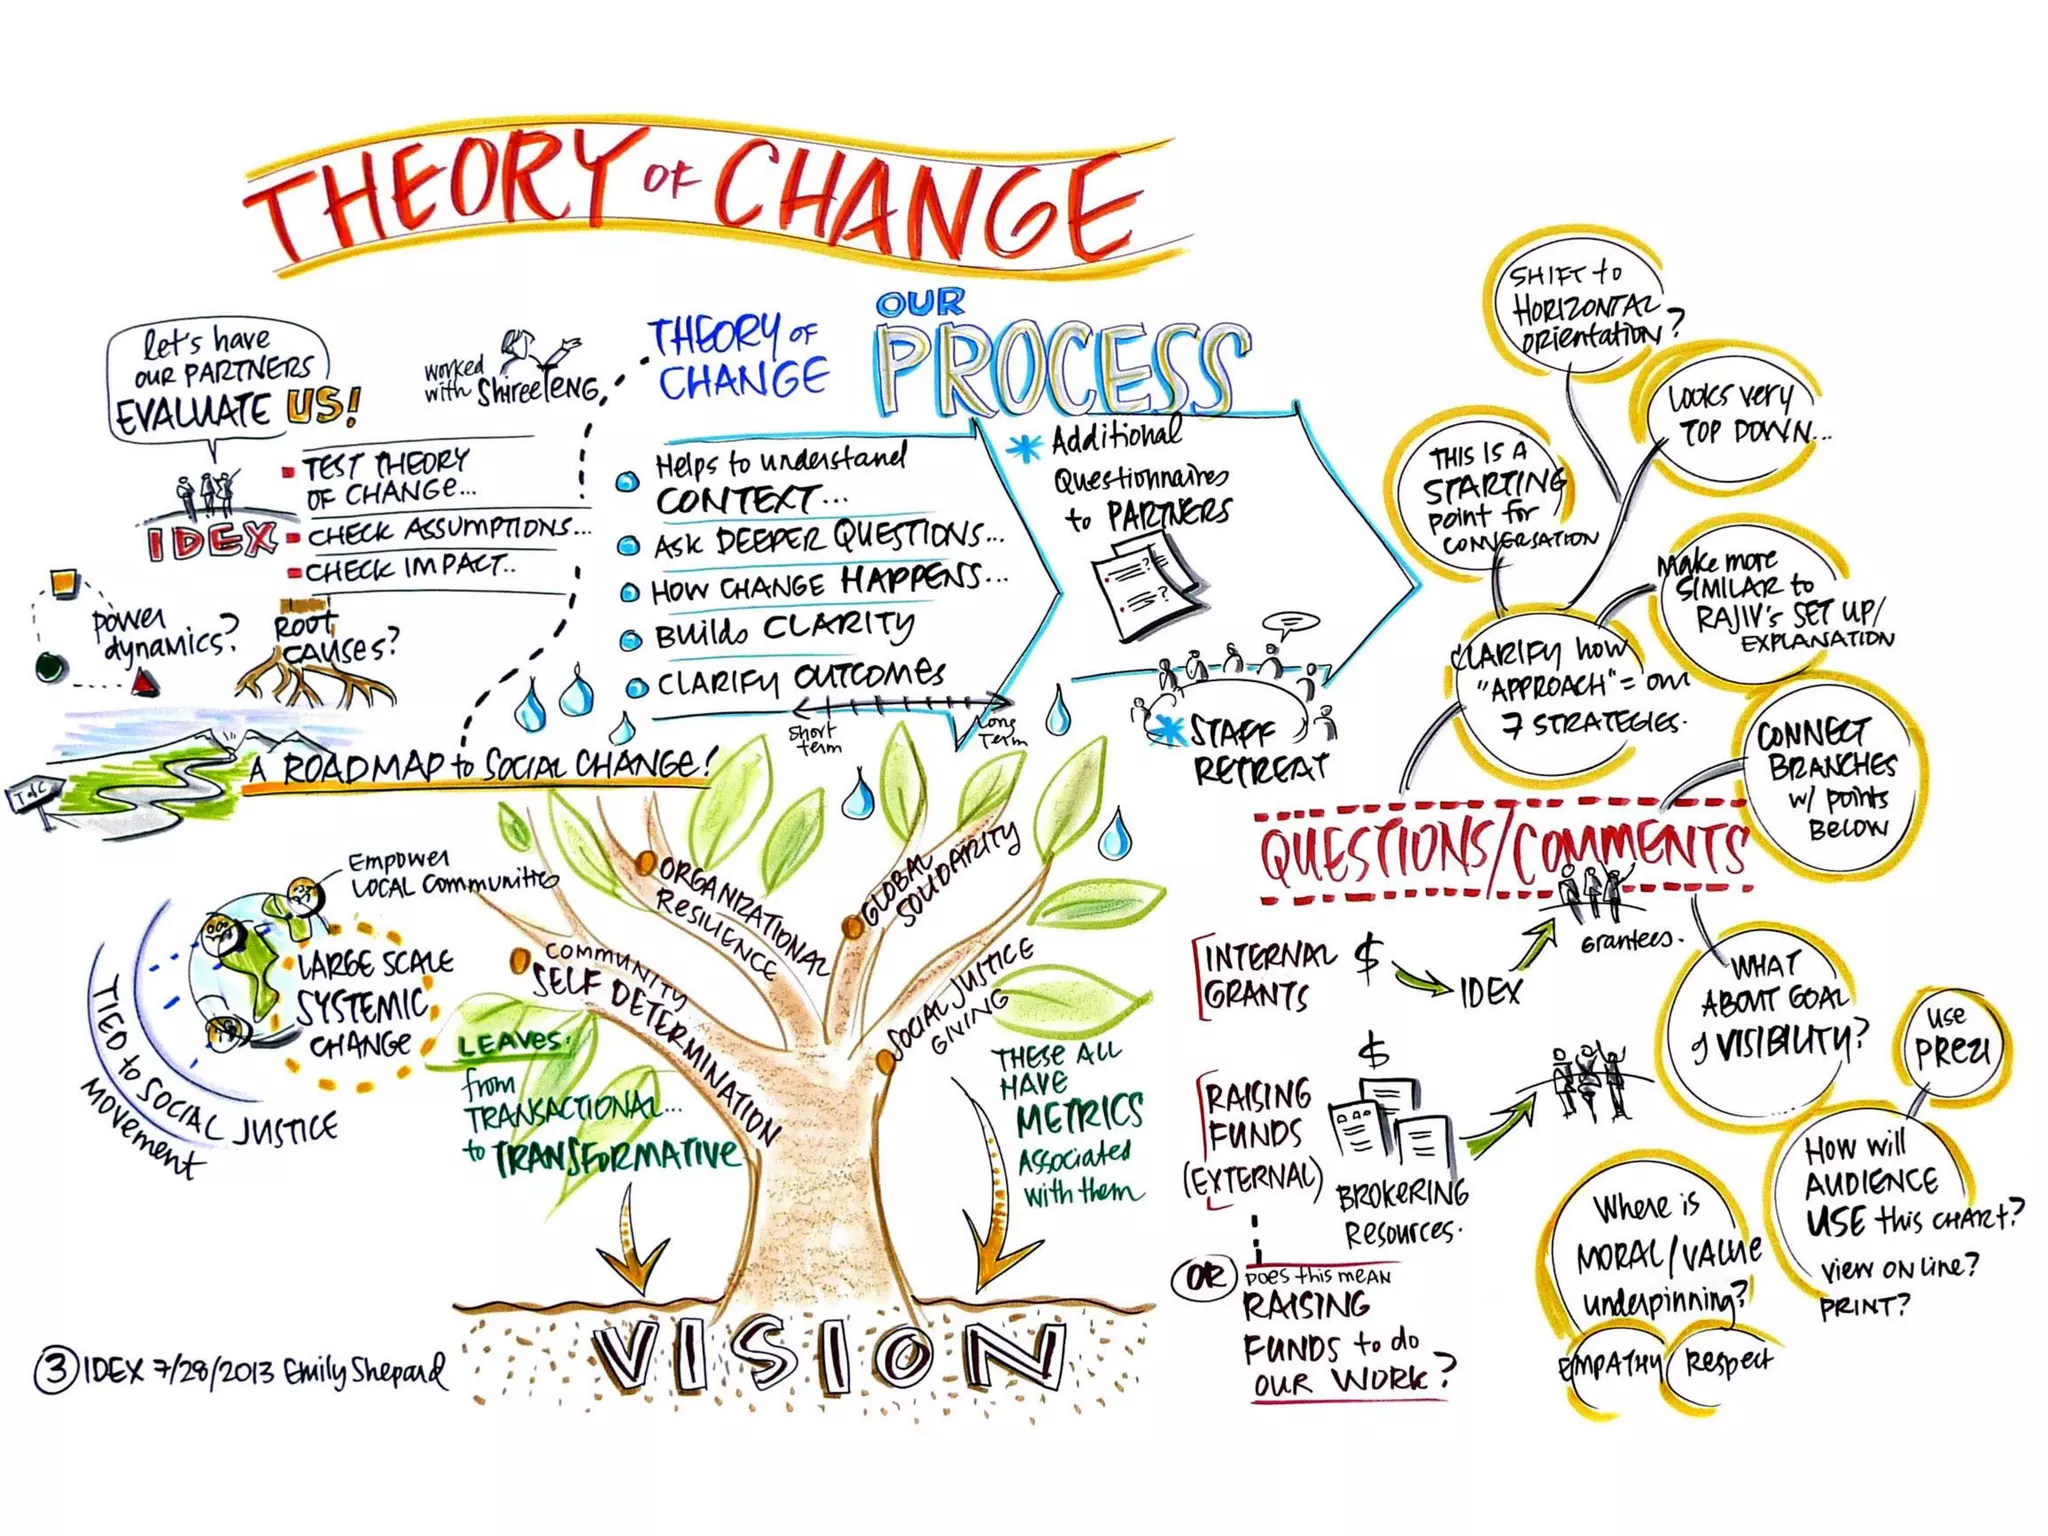 THEORY OF CHANGE
let's have
our PARTNERS
EVALUATE US!
IDEX
TEST THEORY
OF CHANGE...
CHECK ASSUMPTIONS...
CHECK IMPACT..
Power
dynamics?
ROOT
CAUSES?
worked
with Shiree TENG
A ROADMAP to SOCIAL CHANGE!
ToC
THEORY OF
CHANGE
OUR
PROCESS
Helps to understand
CONTEXT...
ASK DEEPER QUESTIONS...
HOW CHANGE HAPPENS...
Builds CLARITY
CLARIFY OUTCOMES
short
term
long
Term
Additional
Questionnaires
to PARTNERS
STAFF
RETREAT
Empower
LOCAL Communities
LARGE SCALE
SYSTEMIC
CHANGE
TIED to SOCIAL JUSTICE
MOVEMENT
COMMUNITY
SELF DETERMINATION
ORGANIZATIONAL
RESILIENCE
GLOBAL
SOLIDARITY
SOCIAL JUSTICE
GIVING
LEAVES:
from
TRANSACTIONAL...
to TRANSFORMATIVE
THESE ALL
HAVE
METRICS
Associated
with them
VISION
SHIFT to
HORIZONTAL
Orientation?
Looks very
TOP DOWN...
THIS IS A
STARTING
point for
CONVERSATION
Make more
SIMILAR to
RAJIV's SET UP/
EXPLANATION
CLARIFY how
"APPROACH" = our
7 STRATEGIES.
CONNECT
BRANCHES
w/ points
BELOW
QUESTIONS/COMMENTS
INTERNAL
GRANTS
$
IDEX
Grantees.
RAISING
FUNDS
(EXTERNAL)
$
BROKERING
Resources.
OR
DOES this MEAN
RAISING
FUNDS to do
OUR WORK?
WHAT
ABOUT GOAL
of VISIBILITY?
use
PREZI
How will
AUDIENCE
USE this CHART?
view ON LINE?
PRINT?
Where is
MORAL/VALUE
underpinning?
EMPATHY
Respect
3 IDEX 7/28/2013 Emily Shepard